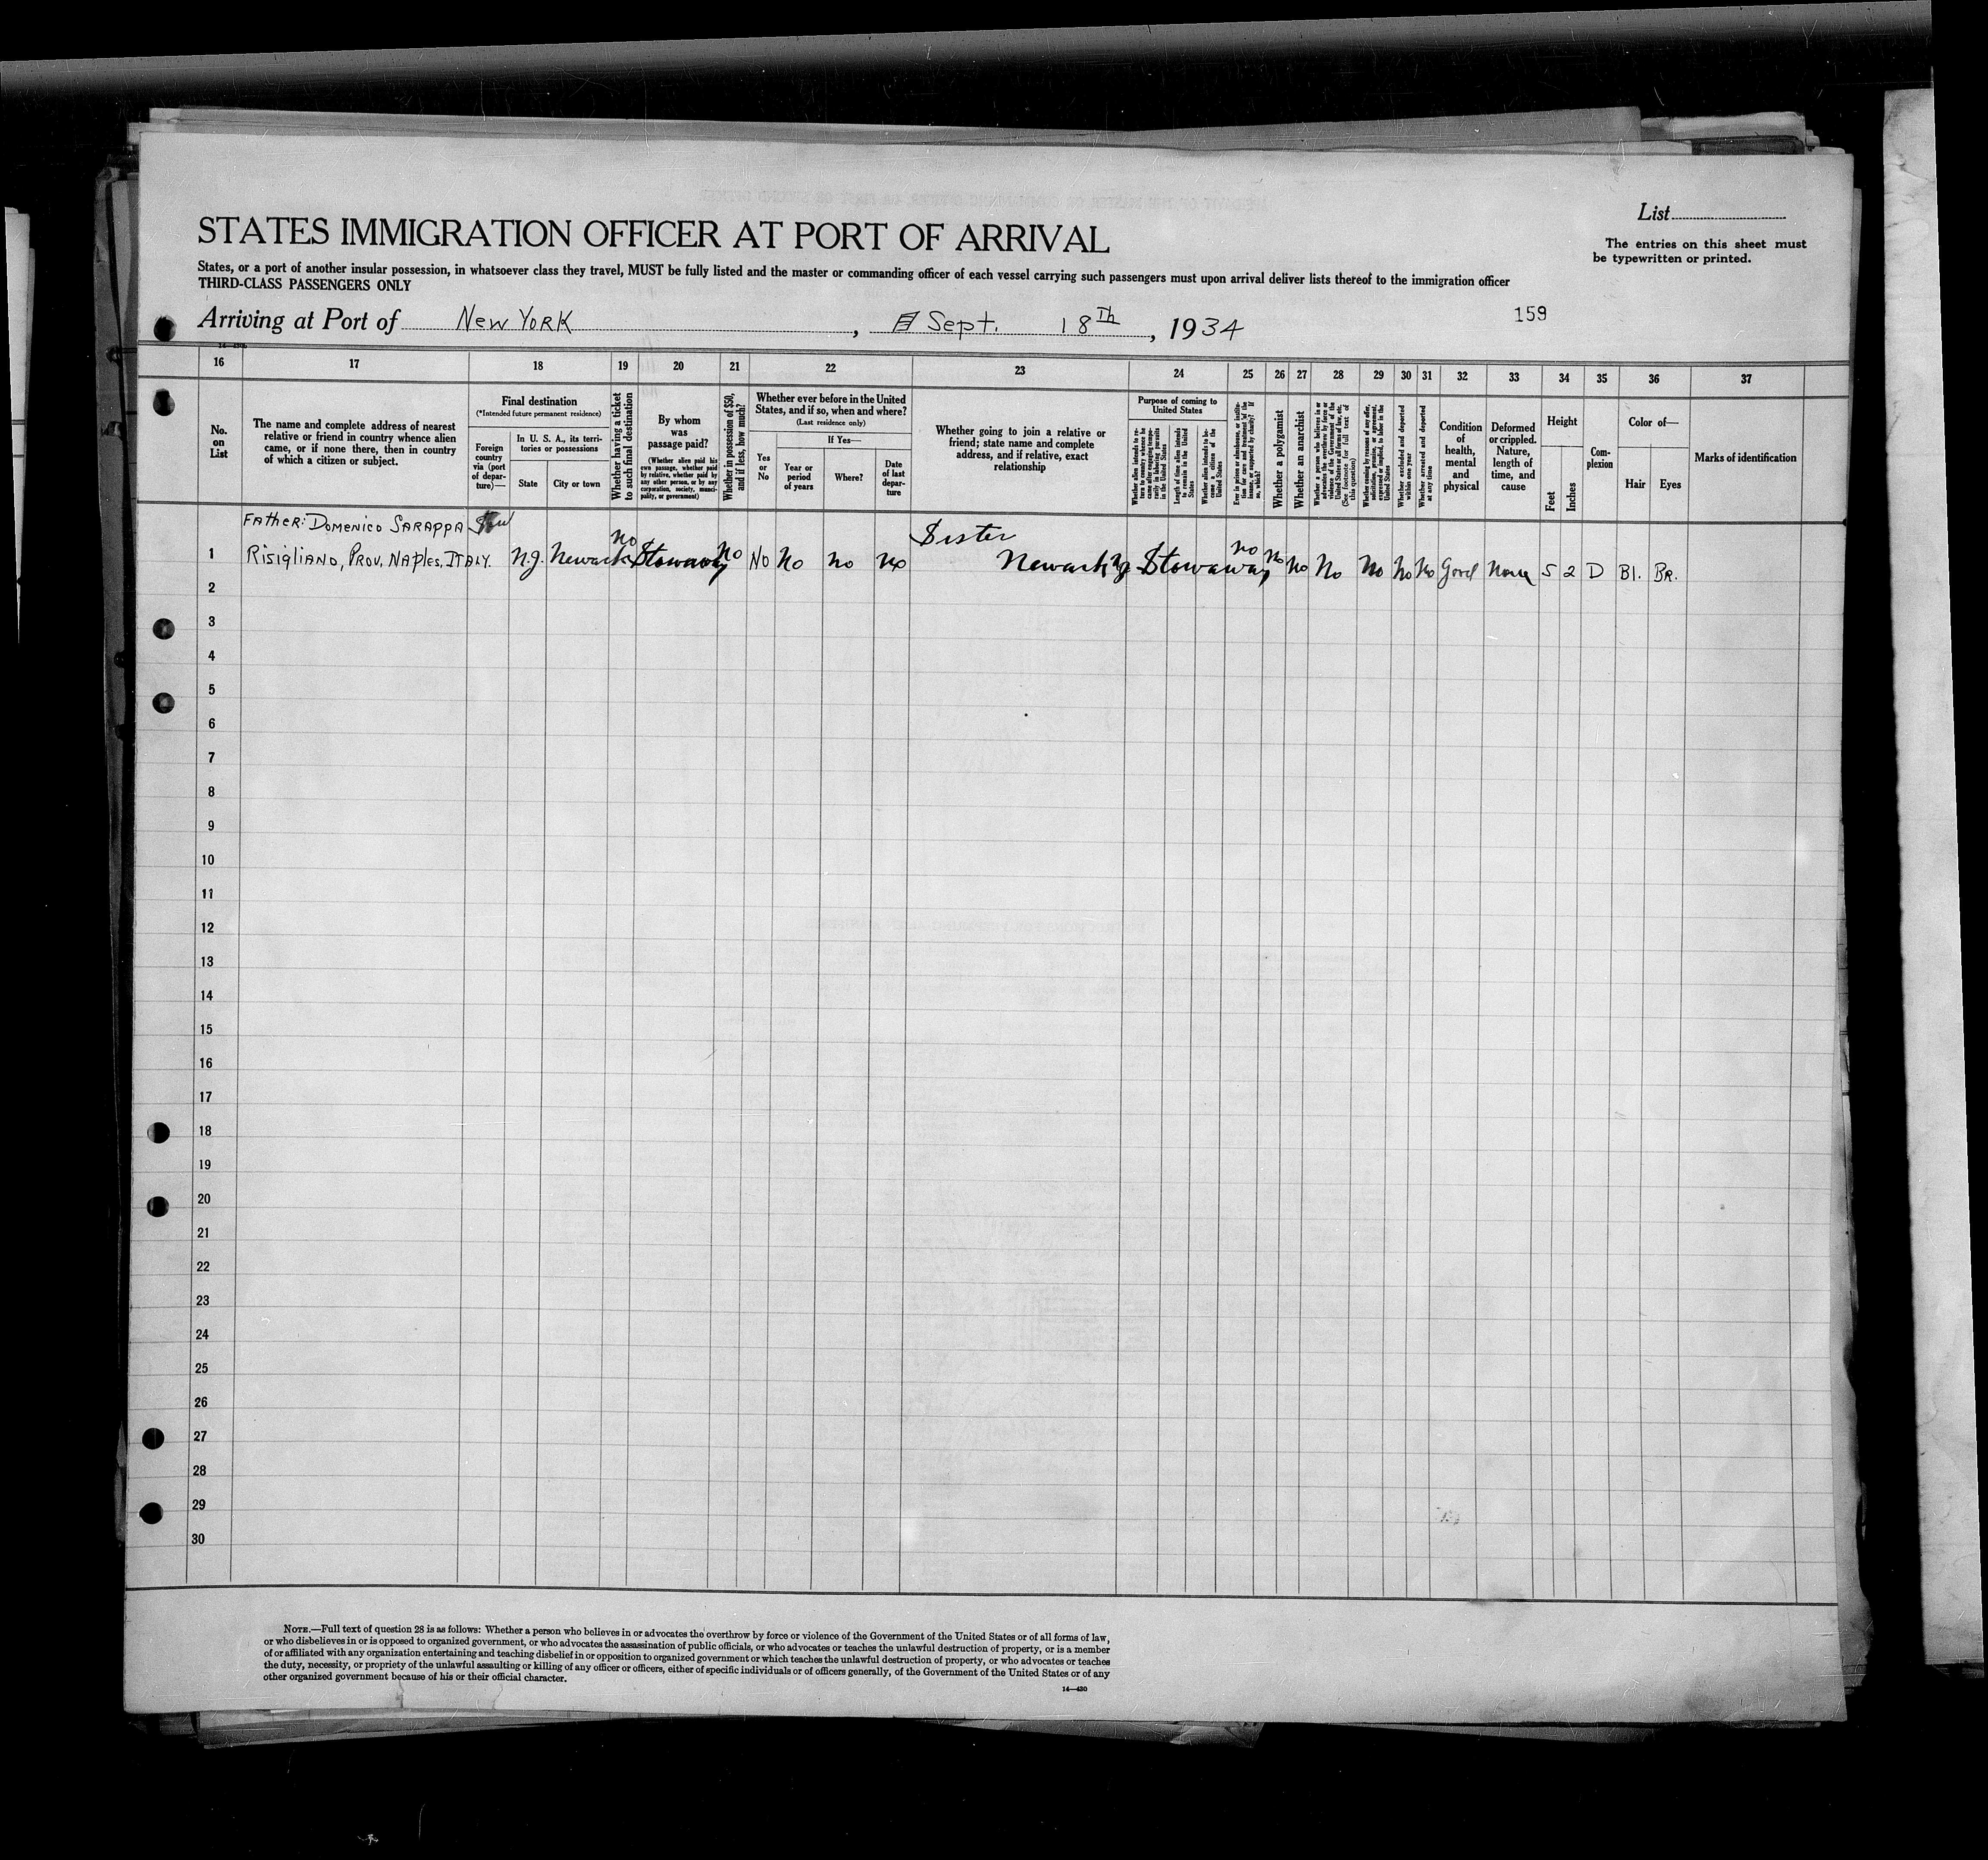 List
STATES IMMIGRATION OFFICER AT PORT OF ARRIVAL
The entries on this sheet must
be typewritten or printed.
States, or a port of another insular possession, in whatsoever class they travel, MUST be fully listed and the master or commanding officer of each vessel carrying such passengers must upon arrival deliver lists thereof to the immigration officer
THIRD-CLASS PASSENGERS ONLY
Arriving at Port of New York, Sept. 18th, 1934
159
16 17 18 19 20 21 22 23 24 25 26 27 28 29 30 31 32 33 34 35 36 37
No.
on
List
The name and complete address of nearest
relative or friend in country whence alien
came, or if none there, then in country
of which a citizen or subject.
Final destination
(*Intended future permanent residence)
Foreign
country
via (port
of depar-
ture)—
In U. S. A., its terri-
tories or possessions
State City or town
Whether having a ticket
to such final destination
By whom
was
passage paid?
(Whether alien paid his
own passage, whether paid
by relative, whether paid by
any other person, or by any
corporation, society, munici-
pality, or government)
Whether in possession of $50,
and if less, how much?
Whether ever before in the United
States, and if so, when and where?
(Last residence only)
Yes
or
No
If Yes—
Year or
period
of years
Where?
Date
of last
depar-
ture
Whether going to join a relative or
friend; state name and complete
address, and if relative, exact
relationship
Purpose of coming to
United States
Whether alien intends to re-
turn to country whence he
came after engaging tempo-
rarily in laboring pursuits
in the United States
Length of time alien intends
to remain in the United
States
Whether alien intends to be-
come a citizen of the
United States
Ever in prison or almshouse, or institu-
tion for care and treatment of the
insane, or supported by charity? If
so, which?
Whether a polygamist
Whether an anarchist
Whether a person who believes in or
advocates the overthrow by force or
violence of the Government of the
United States or all forms of law, etc.
(See footnote for full text of
this question)
Whether coming by reasons of any offer,
solicitation, promise, or agreement,
expressed or implied, to labor in the
United States
Whether excluded and deported
within one year
Whether arrested and deported
at any time
Condition
of
health,
mental
and
physical
Deformed
or crippled.
Nature,
length of
time, and
cause
Height
Feet Inches
Com-
plexion
Color of—
Hair Eyes
Marks of identification
Father: Domenico Sarappa
Sister
1 Risigliano, Prov. Naples, Italy. N.J. Newark no Stowaway no No No no no Newark NJ Stowaway no no no No No No No Good None 5 2 D Bl. Br.
2
3
4
5
6
7
8
9
10
11
12
13
14
15
16
17
18
19
20
21
22
23
24
25
26
27
28
29
30
NOTE.—Full text of question 28 is as follows: Whether a person who believes in or advocates the overthrow by force or violence of the Government of the United States or of all forms of law,
or who disbelieves in or is opposed to organized government, or who advocates the assassination of public officials, or who advocates or teaches the unlawful destruction of property, or is a member
of or affiliated with any organization entertaining and teaching disbelief in or opposition to organized government or which teaches the unlawful destruction of property, or who advocates or teaches
the duty, necessity, or propriety of the unlawful assaulting or killing of any officer or officers, either of specific individuals or of officers generally, of the Government of the United States or of any
other organized government because of his or their official character.
14—430